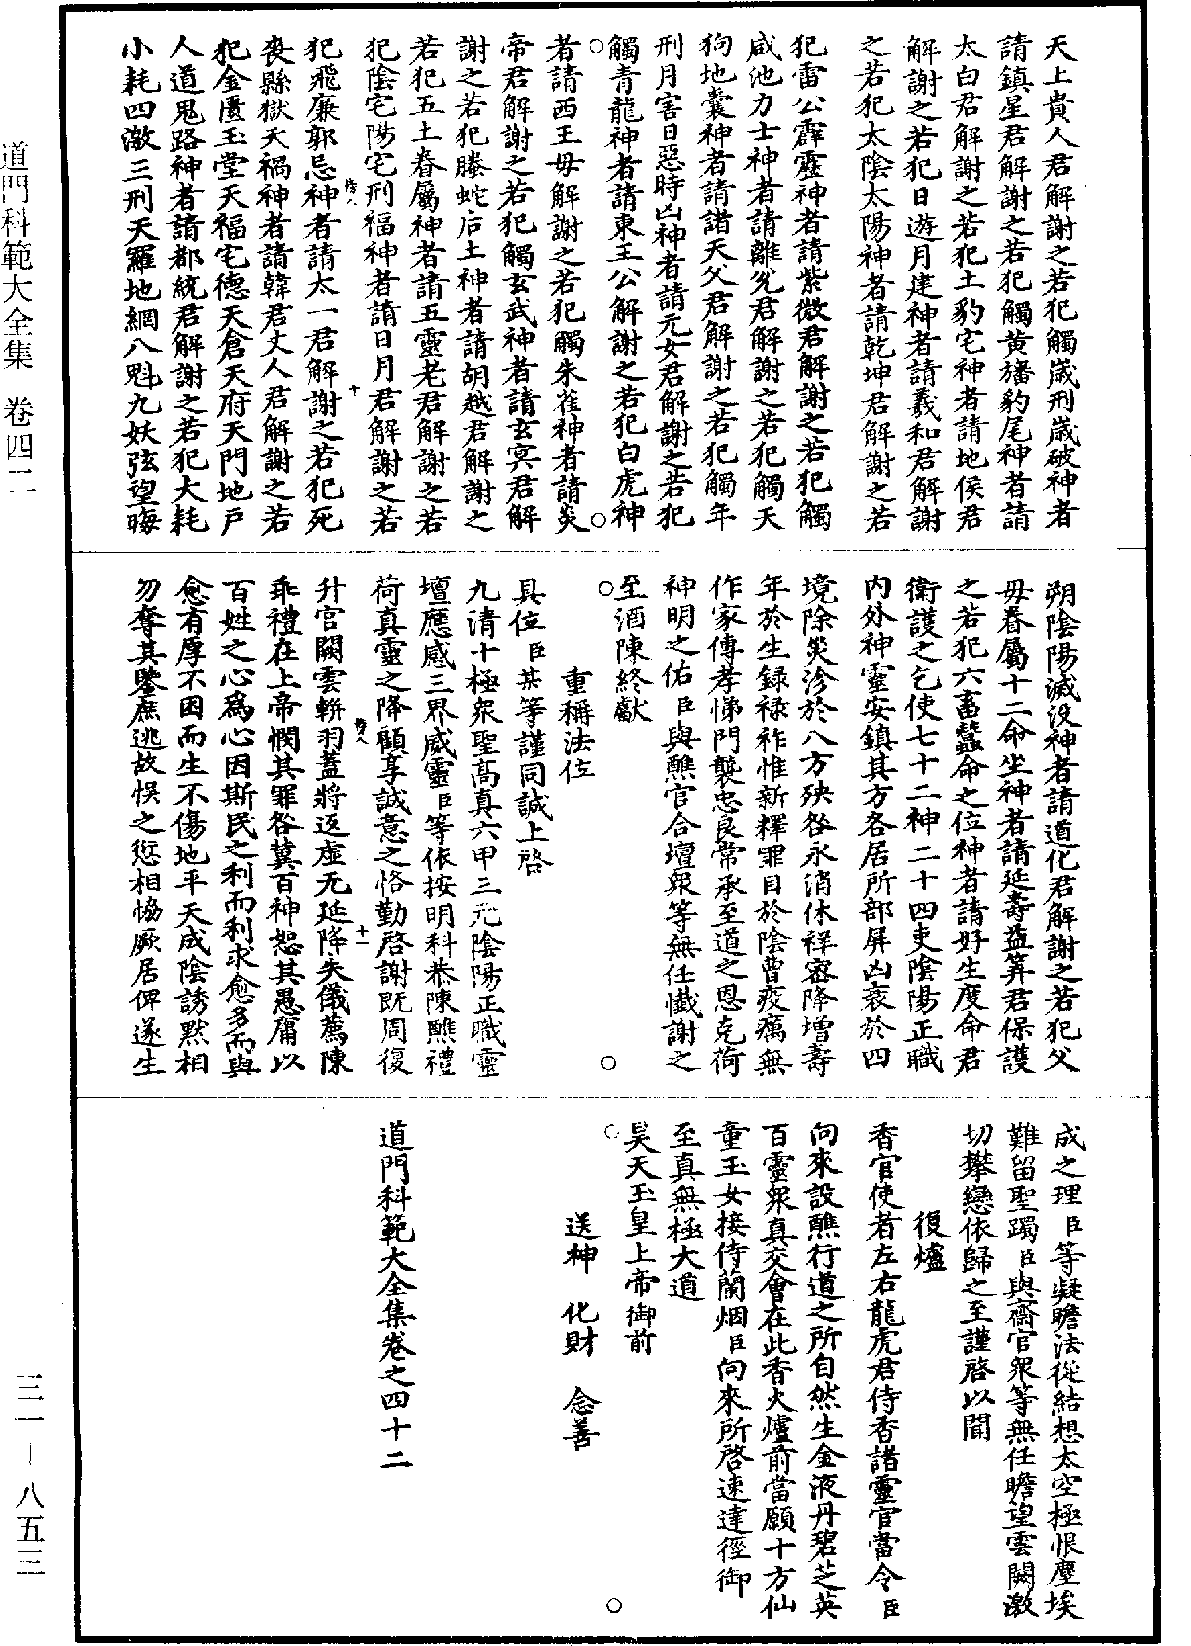 天上貴人君解謝之若犯觸歲刑歲破神者
請鎮星君解謝之若犯觸黃旛豹尾神者請
太白君解謝之若犯土豹宅神者請地侯君
解謝之若犯日遊月建神者請羲和君解謝
之若犯太陰太陽神者請乾坤君解謝之若
犯雷公霹靂神者請紫微君解謝之若犯觸
咸池力士神者請離兊君解謝之若犯觸天
狗地囊神者請諸天父君解謝之若犯觸年
刑月害日惡時凶神者請元女君解謝之若犯
觸青龍神者請東王公解謝之若犯白虎神
者請西王母解謝之若犯觸朱雀神者請炎
帝君解謝之若犯觸玄武神者請玄冥君解
謝之若犯螣蛇后土神者請胡越君解謝之
若犯五土眷屬神者請五靈老君解謝之若
犯陰宅陽宅刑福神者請日月君解謝之若
犯飛廉郭忌神者請太一君解謝之若犯死
喪縣獄天禍神者請韓君丈人君解謝之若
犯金匱玉堂天福宅德天倉天府天門地戶
人道鬼路神者請都統君解謝之若犯大耗
小耗四激三刑天羅地網八魁九妖弦望晦
朔陰陽滅没神者請道化君解謝之若犯父
母眷屬十二命坐神者請延壽益筭君保護
之若犯六畜蠶命之位神者請好生度命君
衛護之乞使七十二神二十四吏陰陽正職
內外神靈安鎮其方各居所部屏凶衰於四
境除災沴於八方殃咎永消休祥密降增壽
年於生錄祿祚惟新釋罪目於陰曹疫癘無
作家傳孝悌門襲忠良常承至道之恩克荷
神明之佑臣與醮官合壇衆等無任懺謝之
至酒陳終獻
重稱法位
具位臣某等謹同誠上啓
九清十極衆聖高真六甲三元陰陽正職靈
壇應感三界威靈臣等依按明科恭陳醮禮
荷真靈之降顧享誠意之恪勤啓謝既周復
升官闕雲輧羽蓋將返虛无延降失儀薦陳
乖禮在上帝憫其罪咎冀百神恕其愚庸以
百姓之心為心因斯民之利而利求愈多而與
愈有厚不困而生不傷地平天成陰誘默相
勿奪其鑒庶逃故悮之愆相恊厥居俾遂生
成之理臣等凝瞻法從結想太空極恨塵埃
難留聖躅臣與齋官衆等無任瞻望雲闕激
切攀戀依歸之至謹啓以聞
復爐
香官使者左右龍虎君侍香諸靈官當令臣
向來設醮行道之所自然生金液丹碧芝英
百靈衆真交會在此香火爐前當願十方仙
童玉女接侍蘭烟臣向來所啓速達徑御
至真無極大道
昊天玉皇上帝御前
送神　化財　念善
道門科範大全集卷之四十二
道門科範大全集　卷四二
三一－八五三